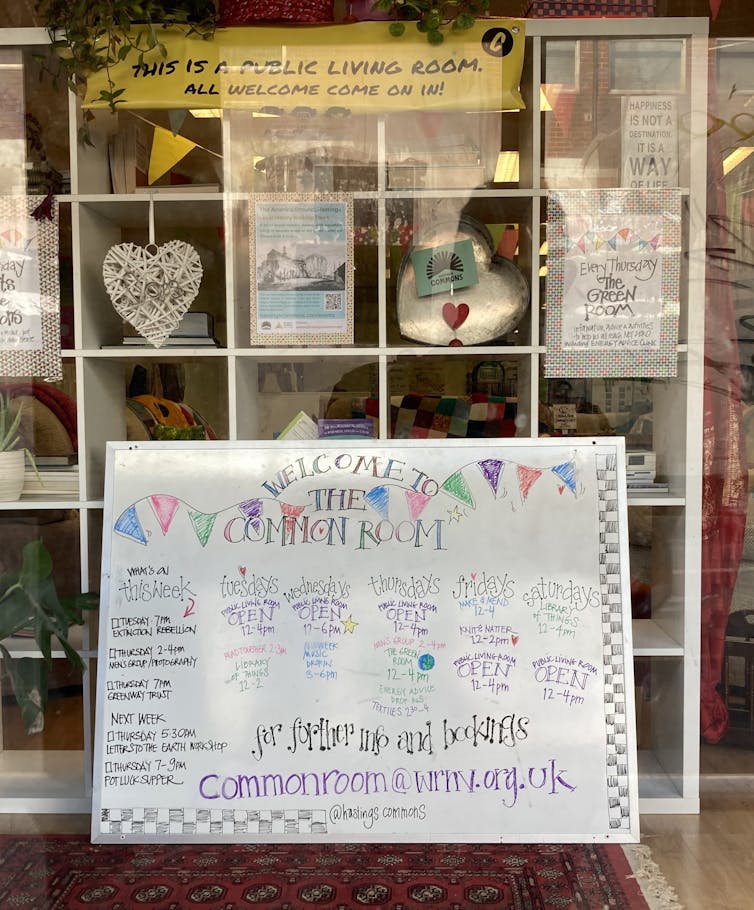 THIS IS A PUBLIC LIVING ROOM.
ALL WELCOME COME ON IN!
HAPPINESS
IS NOT A
DESTINATION.
IT IS A
WAY
OF LIFE
COMMONS
Every Thursday
The
GREEN
ROOM
WELCOME TO
THE
COMMON ROOM
WHAT'S ON
this week
TUESDAY · 7PM
EXTINCTION REBELLION
THURSDAY 2-4PM
MEN'S GROUP/PHOTOGRAPHY
THURSDAY 7PM
GREENWAY TRUST
NEXT WEEK
THURSDAY 5:30PM
LETTERS TO THE EARTH WORKSHOP
THURSDAY 7-9PM
POT LUCK SUPPER
tuesdays
PUBLIC LIVING ROOM
OPEN
12-4pm
READ TOGETHER
LIBRARY
OF THINGS
12-2
wednesdays
PUBLIC LIVING ROOM
OPEN
12-6pm
MIDWEEK
MUSIC
DROP IN
3-6pm
thursdays
PUBLIC LIVING ROOM
OPEN
12-4pm
MEN'S GROUP 2-4pm
THE GREEN
ROOM
12-4pm
ENERGY ADVICE
TEXTILES
fridays
MAKE & MEND
12-4
KNIT & NATTER
12-2pm
PUBLIC LIVING ROOM
OPEN
12-4pm
saturdays
LIBRARY
OF THINGS
12-4
PUBLIC LIVING ROOM
OPEN
12-4pm
for further info and bookings
commonroom@wrnv.org.uk
@hastings commons